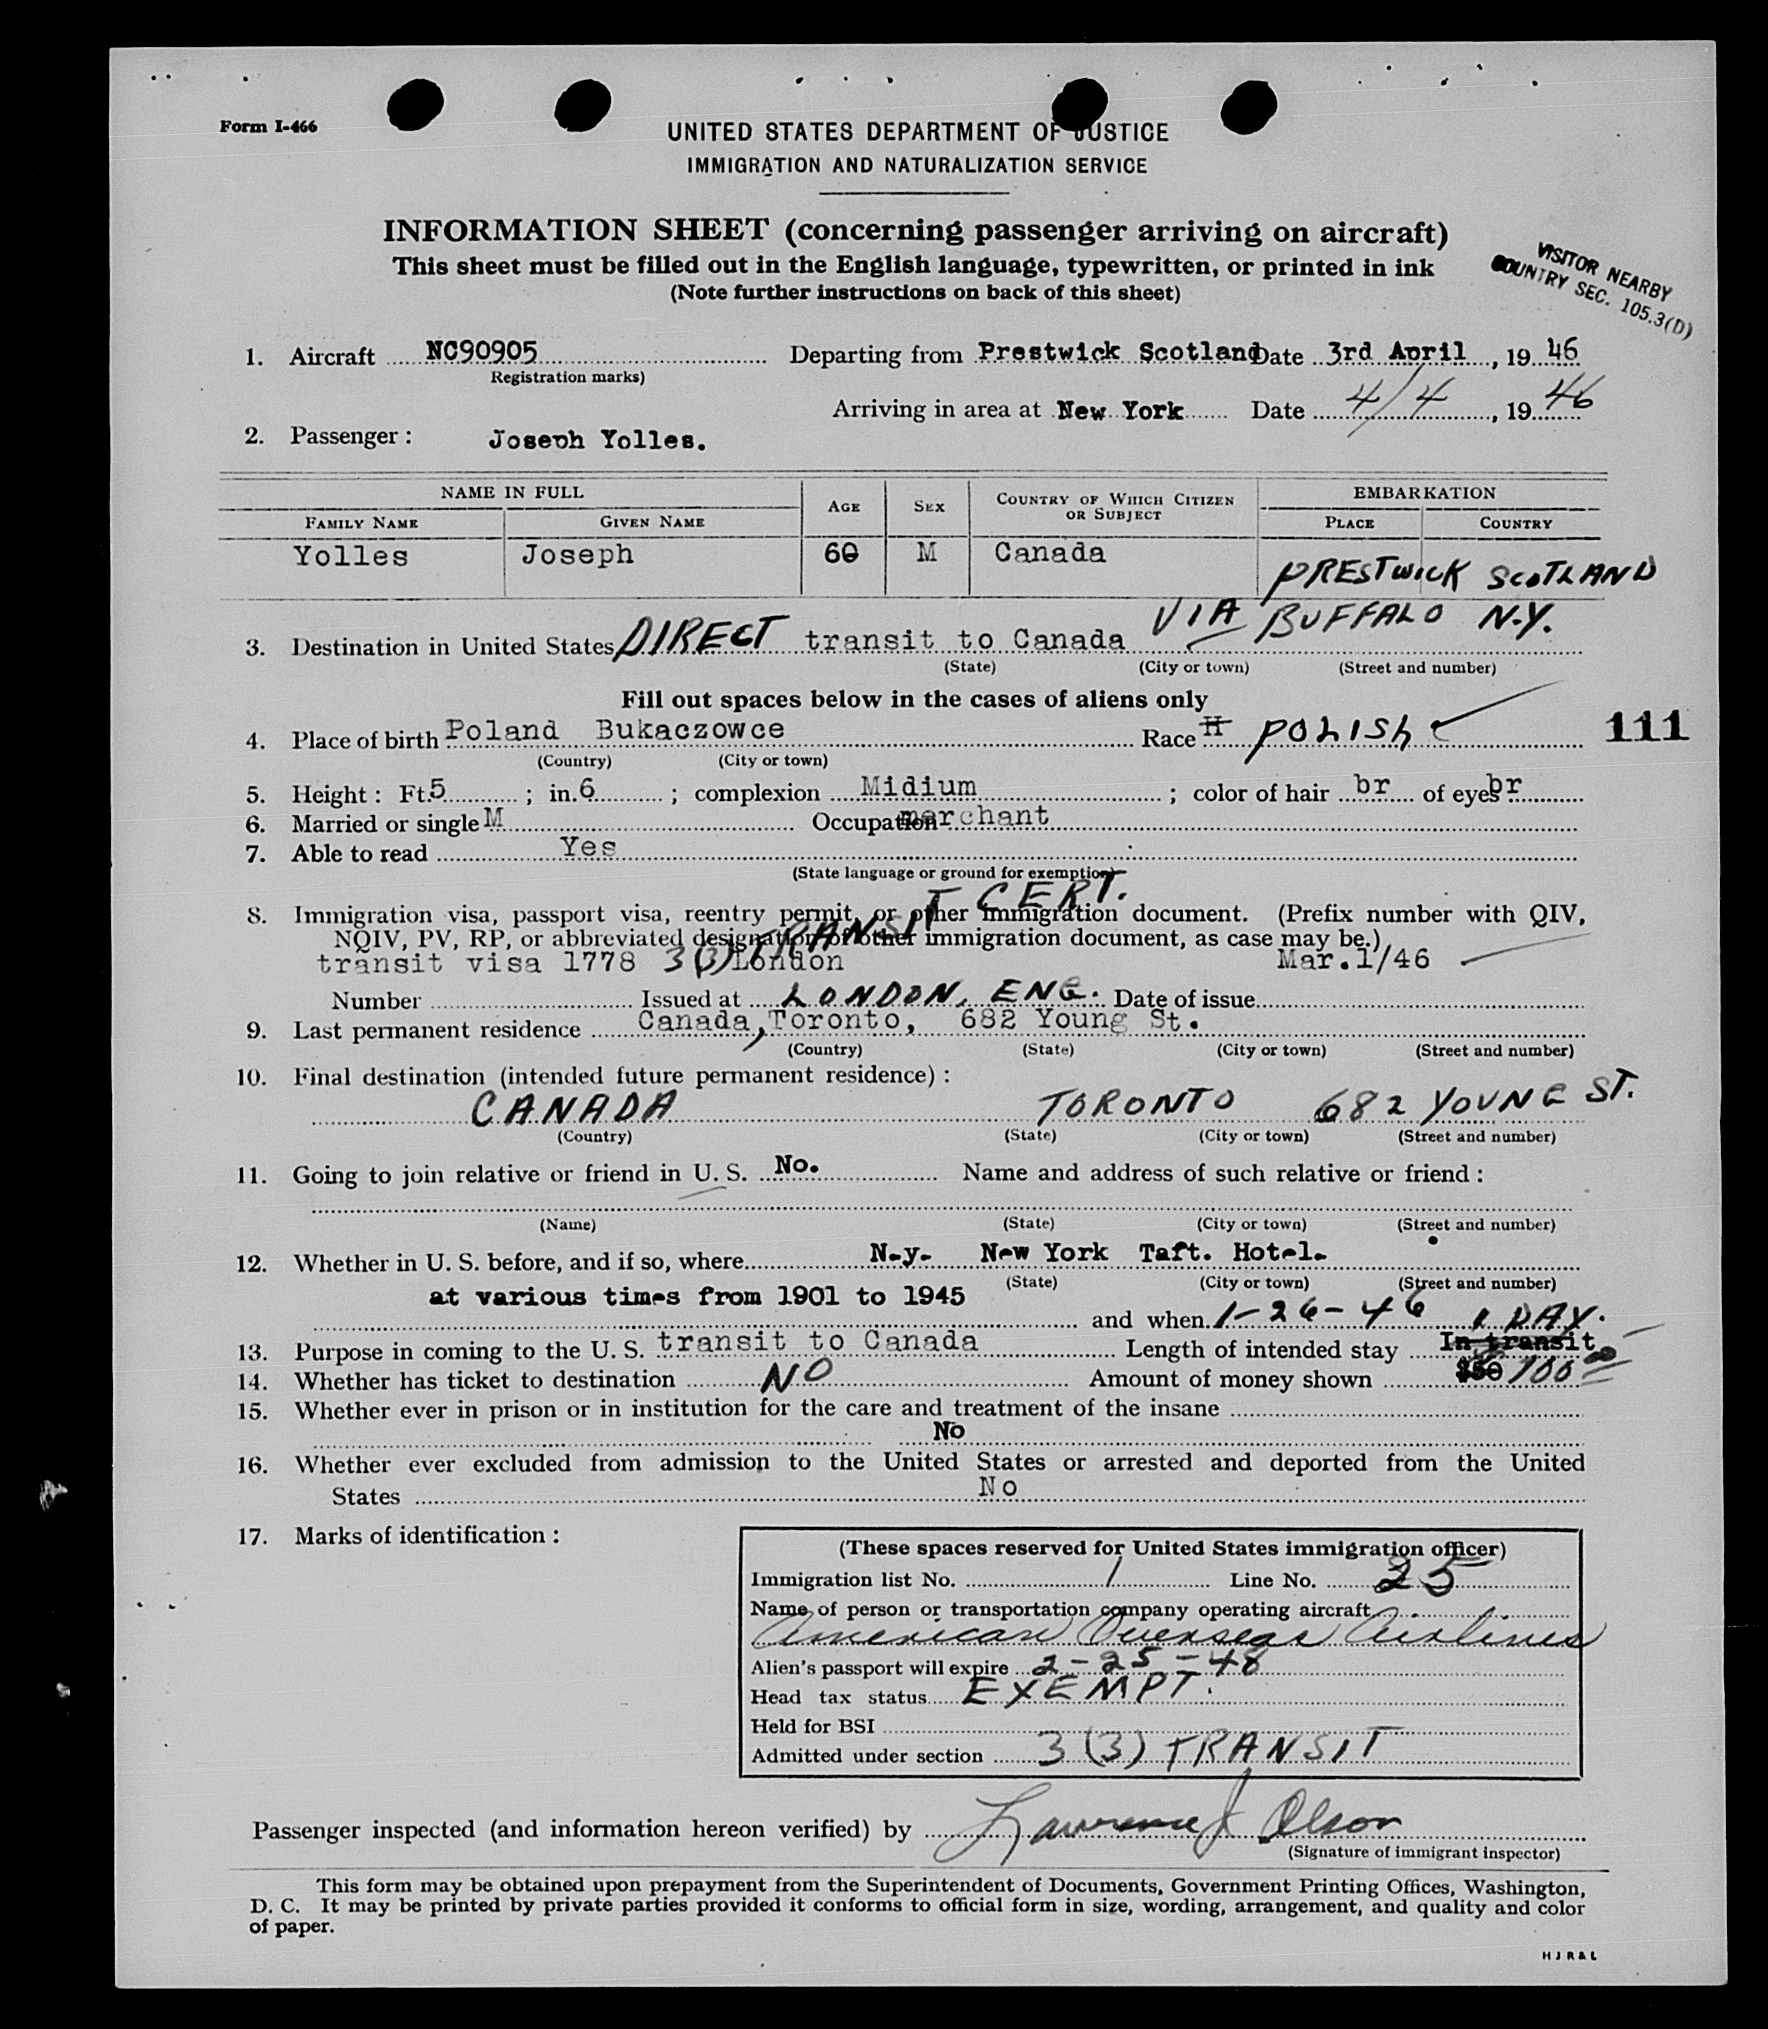 Form I-466
UNITED STATES DEPARTMENT OF JUSTICE
IMMIGRATION AND NATURALIZATION SERVICE
INFORMATION SHEET (concerning passenger arriving on aircraft)
This sheet must be filled out in the English language, typewritten, or printed in ink
(Note further instructions on back of this sheet)
VISITOR NEARBY
COUNTRY SEC. 105.3(D)
1. Aircraft NC90905 Departing from Prestwick Scotland Date 3rd April, 19 46
Registration marks)
Arriving in area at New York Date 4/4, 19 46
2. Passenger: Joseph Yolles.
NAME IN FULL AGE SEX COUNTRY OF WHICH CITIZEN OR SUBJECT EMBARKATION
FAMILY NAME GIVEN NAME PLACE COUNTRY
Yolles Joseph 60 M Canada PRESTWICK SCOTLAND
3. Destination in United States DIRECT transit to Canada VIA BUFFALO N.Y.
(State) (City or town) (Street and number)
Fill out spaces below in the cases of aliens only
4. Place of birth Poland Bukaczowce Race H POLISH
111
(Country) (City or town)
5. Height: Ft. 5 ; in. 6 ; complexion Midium ; color of hair br of eyes br
6. Married or single M Occupation merchant
7. Able to read Yes
(State language or ground for exemption)
TRANSIT CERT.
8. Immigration visa, passport visa, reentry permit, or other immigration document. (Prefix number with QIV,
NQIV, PV, RP, or abbreviated designation of other immigration document, as case may be.)
transit visa 1778 3(3) London Mar.1/46
Number Issued at LONDON, ENG. Date of issue
9. Last permanent residence Canada, Toronto, 682 Young St.
(Country) (State) (City or town) (Street and number)
10. Final destination (intended future permanent residence):
CANADA TORONTO 682 YOUNG ST.
(Country) (State) (City or town) (Street and number)
11. Going to join relative or friend in U. S. No. Name and address of such relative or friend:
(Name) (State) (City or town) (Street and number)
12. Whether in U. S. before, and if so, where N.y. New York Taft. Hotel.
(State) (City or town) (Street and number)
at various times from 1901 to 1945
and when 1-26-46 1 DAY.
13. Purpose in coming to the U. S. transit to Canada Length of intended stay In transit
14. Whether has ticket to destination NO Amount of money shown $50 100 00
15. Whether ever in prison or in institution for the care and treatment of the insane
No
16. Whether ever excluded from admission to the United States or arrested and deported from the United
States No
17. Marks of identification:
(These spaces reserved for United States immigration officer)
Immigration list No. 1 Line No. 25
Name of person or transportation company operating aircraft
American Overseas Airlines
Alien's passport will expire 2-25-48
Head tax status EXEMPT.
Held for BSI
Admitted under section 3(3) TRANSIT
Passenger inspected (and information hereon verified) by Lawrence J Olson
(Signature of immigrant inspector)
This form may be obtained upon prepayment from the Superintendent of Documents, Government Printing Offices, Washington,
D. C. It may be printed by private parties provided it conforms to official form in size, wording, arrangement, and quality and color
of paper.
H J R & L